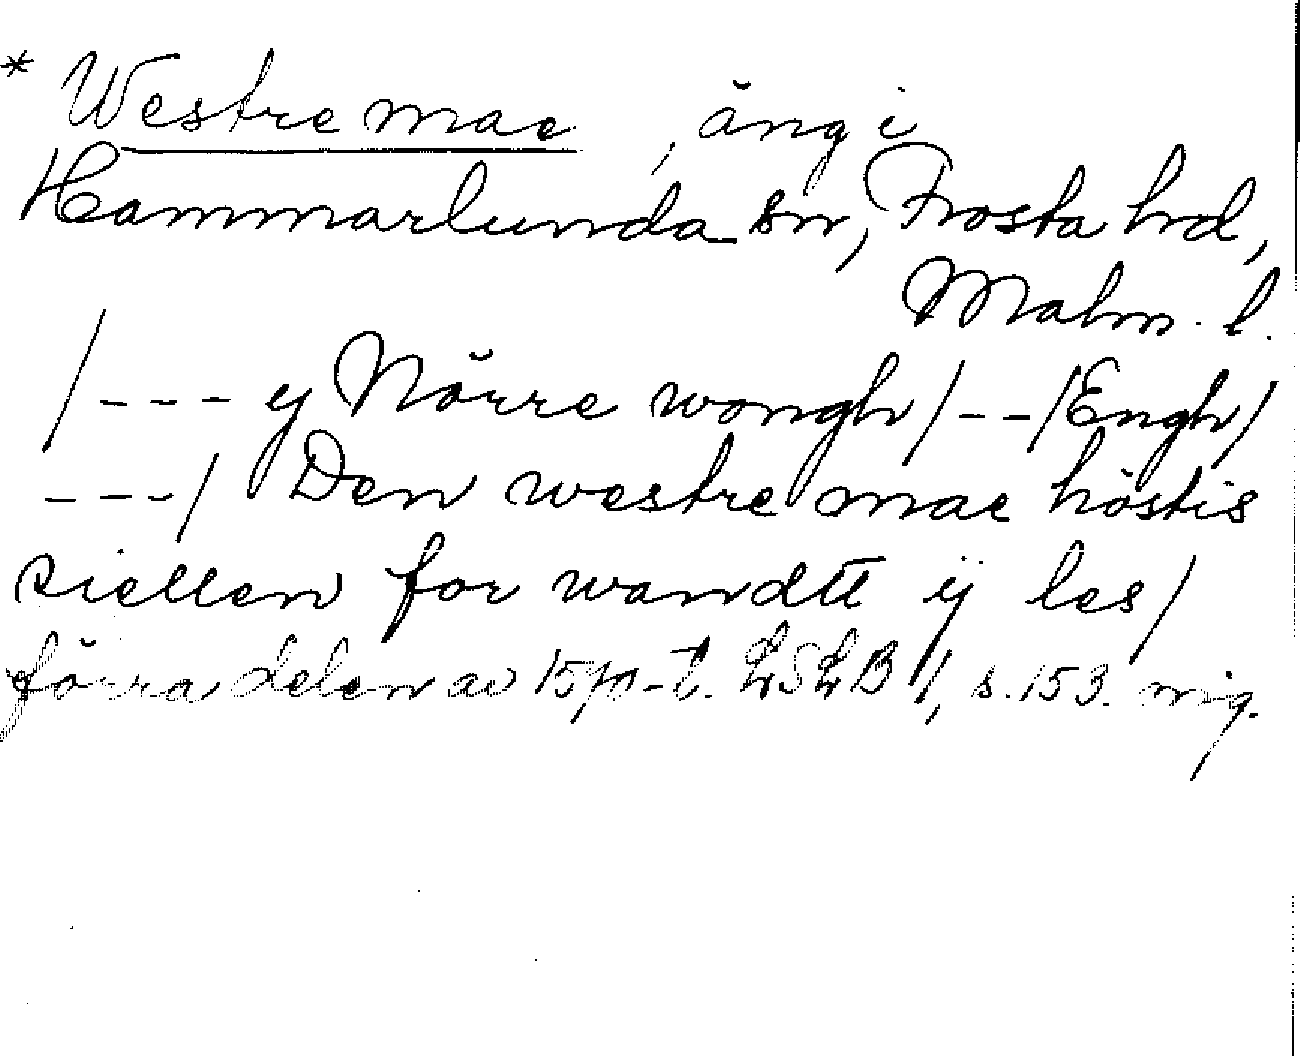 * Westre mae, äng i
Hammarlunda sn, Frosta hrd,
Malm. l.
/--- y Nörre wongh/--/Engh/
---/ Den westre mae höstis
siellen for wandtt ij les/
förra delen av 1570-t. LSLB 1, s. 153.